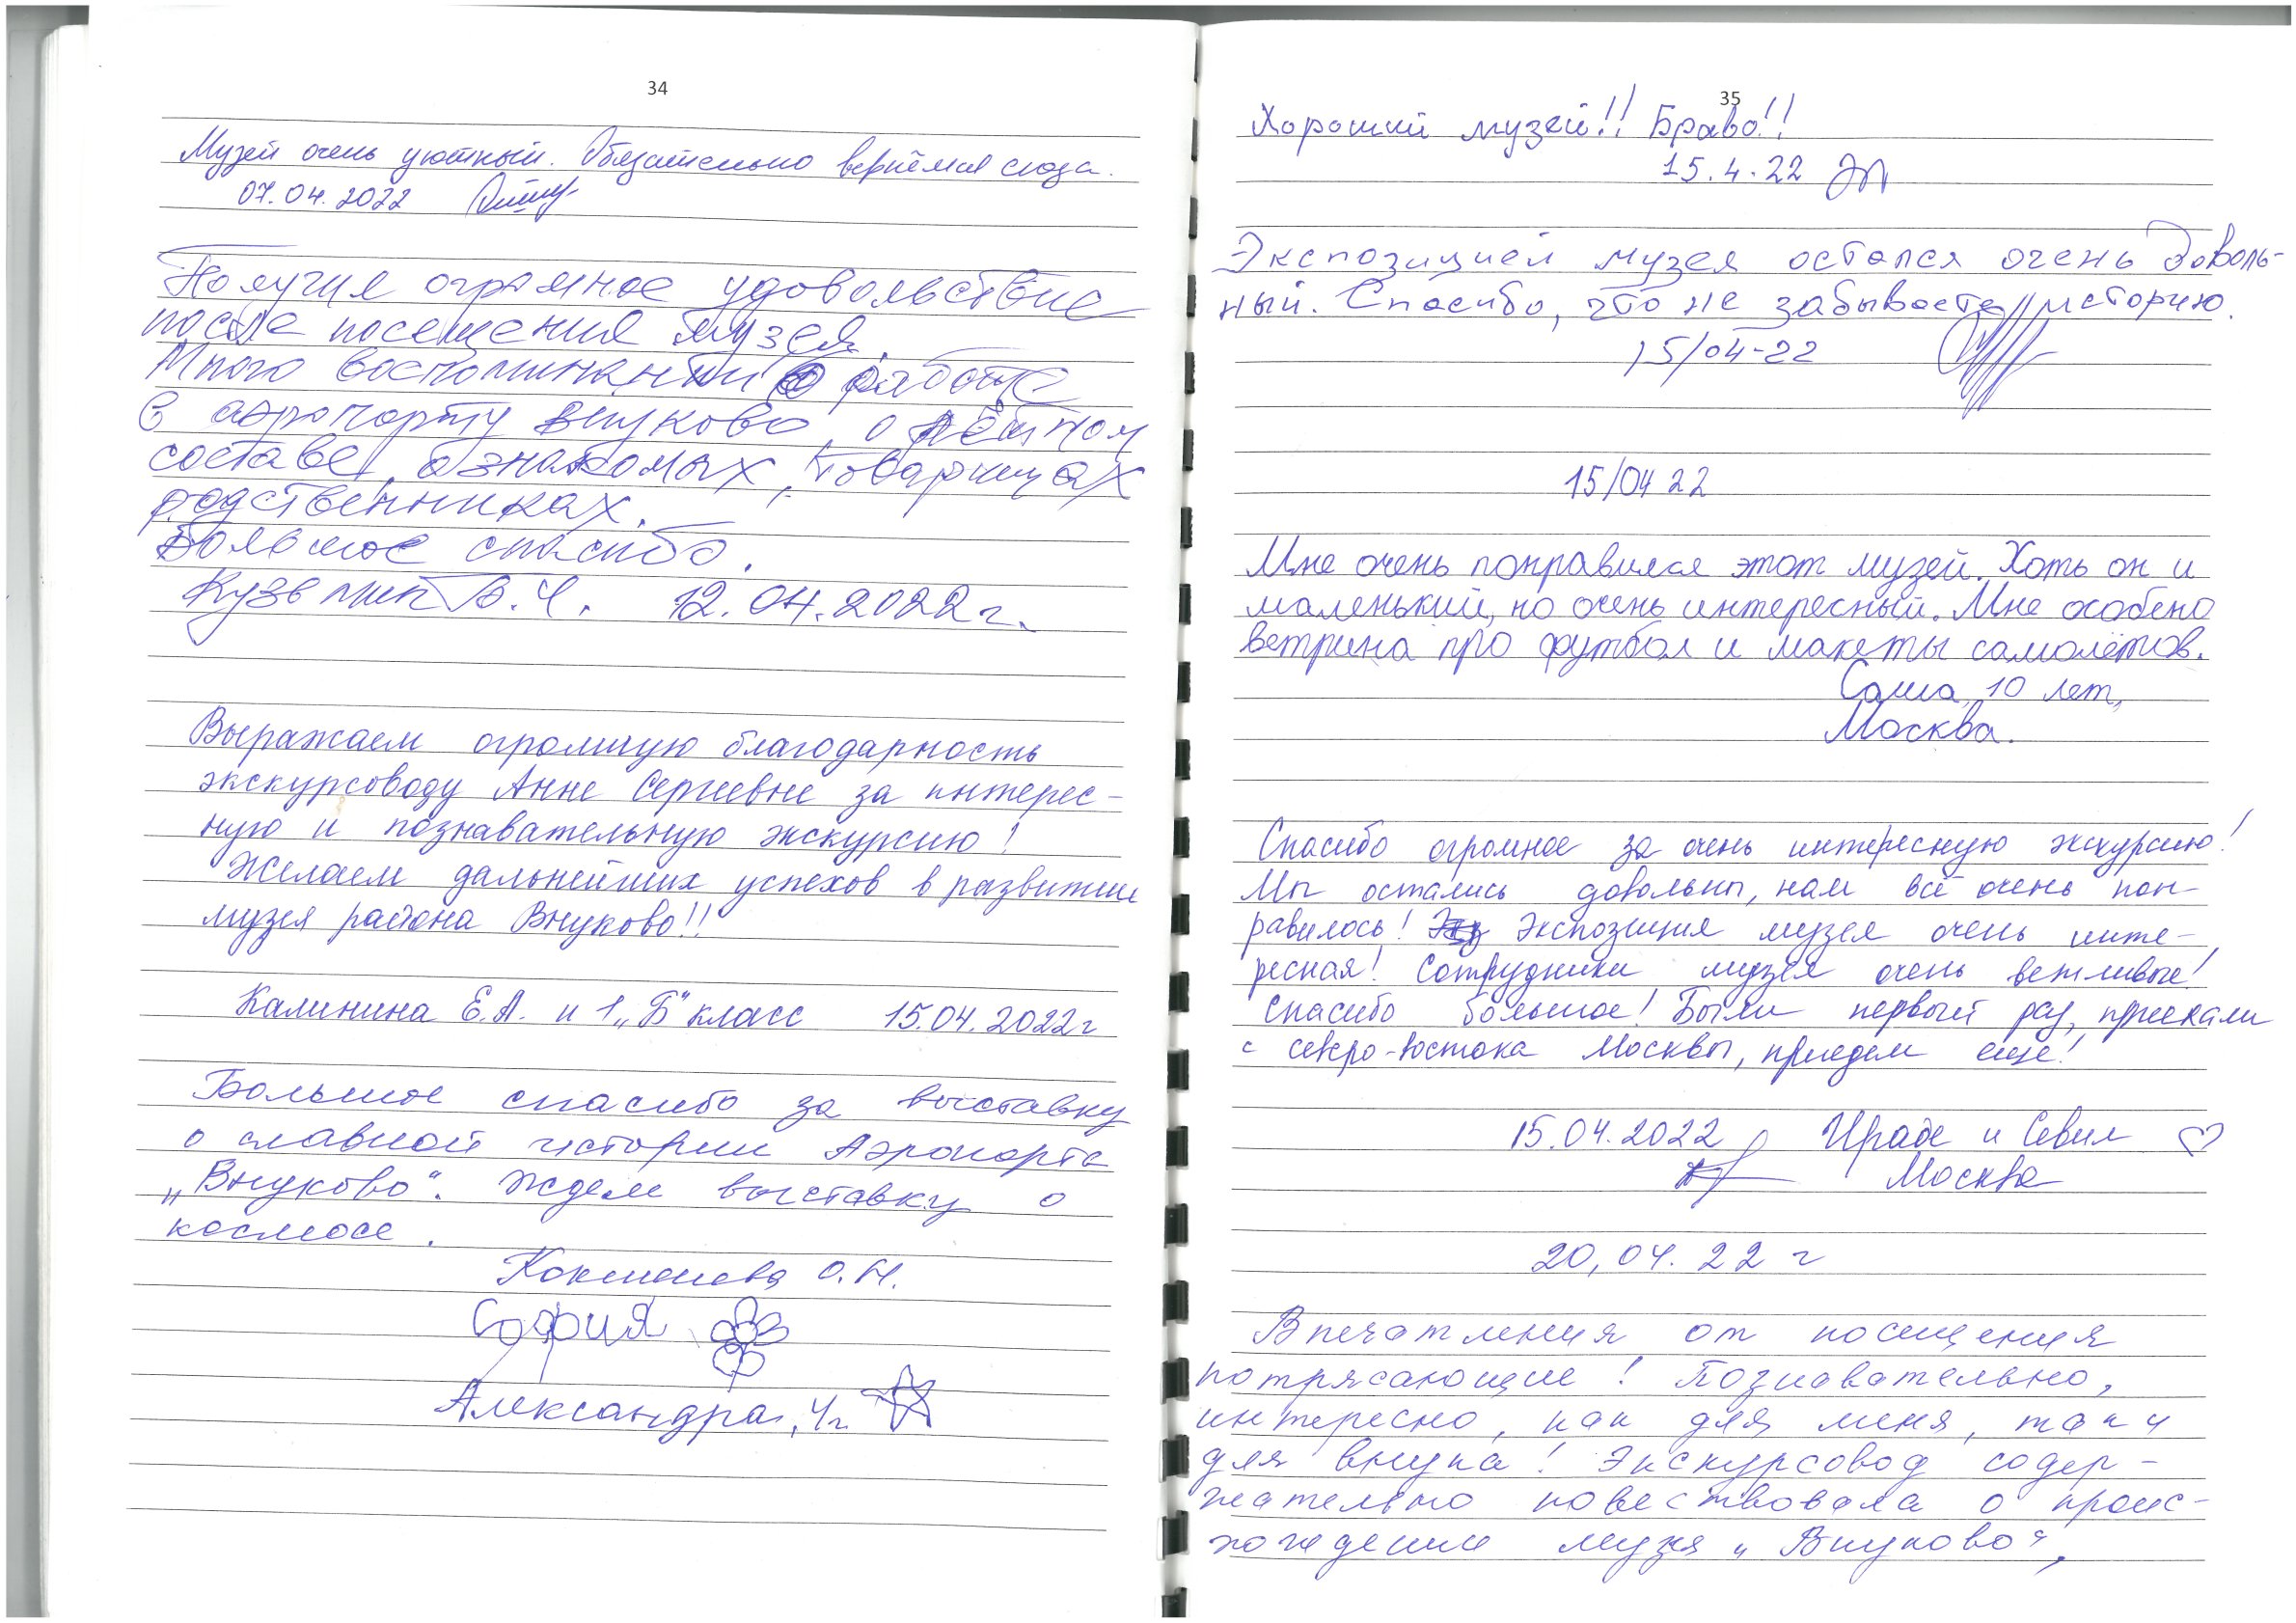 34
Музей очень уютный. Обязательно вернёмся сюда.
07.04.2022
Получил огромное удовольствие
после посещения музея.
Много воспоминаний о работе
в аэропорту Внуково, о лётном
составе, о знакомых, товарищах
родственниках.
Большое спасибо.
Кузьмин В.И. 12.04.2022 г.
Выражаем огромную благодарность
экскурсоводу Анне Сергеевне за интерес-
ную и познавательную экскурсию!
Желаем дальнейших успехов в развитии
музея района Внуково!!
Калинина Е.А. и 1 „Б" класс 15.04.2022 г
Большое спасибо за выставку
о славной истории Аэропорта
„Внуково". Ждем выставку о
космосе.
О.Н.
София
Александра, 4 г.
35
Хороший музей!! Браво!!
15.4.22
Экспозицией музея остался очень доволь-
ный. Спасибо, что не забываете историю.
15/04-22
15/04 22
Мне очень понравился этот музей. Хоть он и
маленький, но очень интересный. Мне особено
ветрина про футбол и макеты самолётов.
Саша, 10 лет,
Москва.
Спасибо огромное за очень интересную экскурсию!
Мы остались довольны, нам всё очень пон-
равилось! Экспозиция музея очень инте-
ресная! Сотрудники музея очень вежливые!
Спасибо большое! Были первый раз, приехали
с северо-востока Москвы, приедем еще!
15.04.2022 Ираде и Севил
Москва
20,04.22 г
Впечатления от посещения
потрясающие! Познавательно,
интересно, как для меня, так и
для внука! Экскурсовод содер-
жательно повествовала о проис-
хождении музея „Внуково",